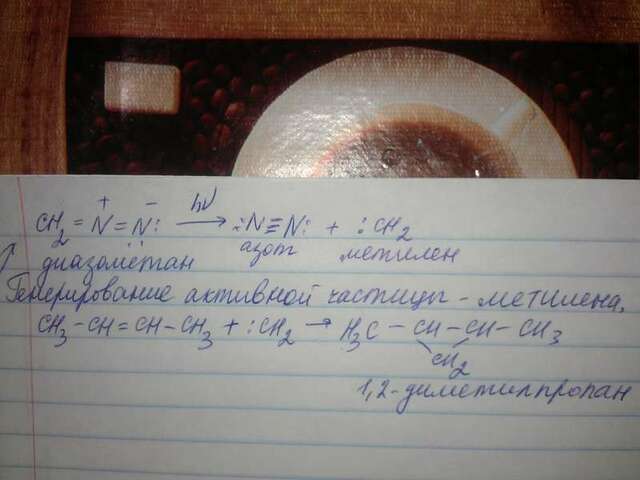 CH₂=N⁺=N̈⁻: —hν→ :N≡N: + :CH₂
диазометан азот метилен
Генерирование активной частицы - метилена.
CH₃-CH=CH-CH₃+:CH₂→ H₃C-CH-CH-CH₃
CH₂
1,2-диметилпропан